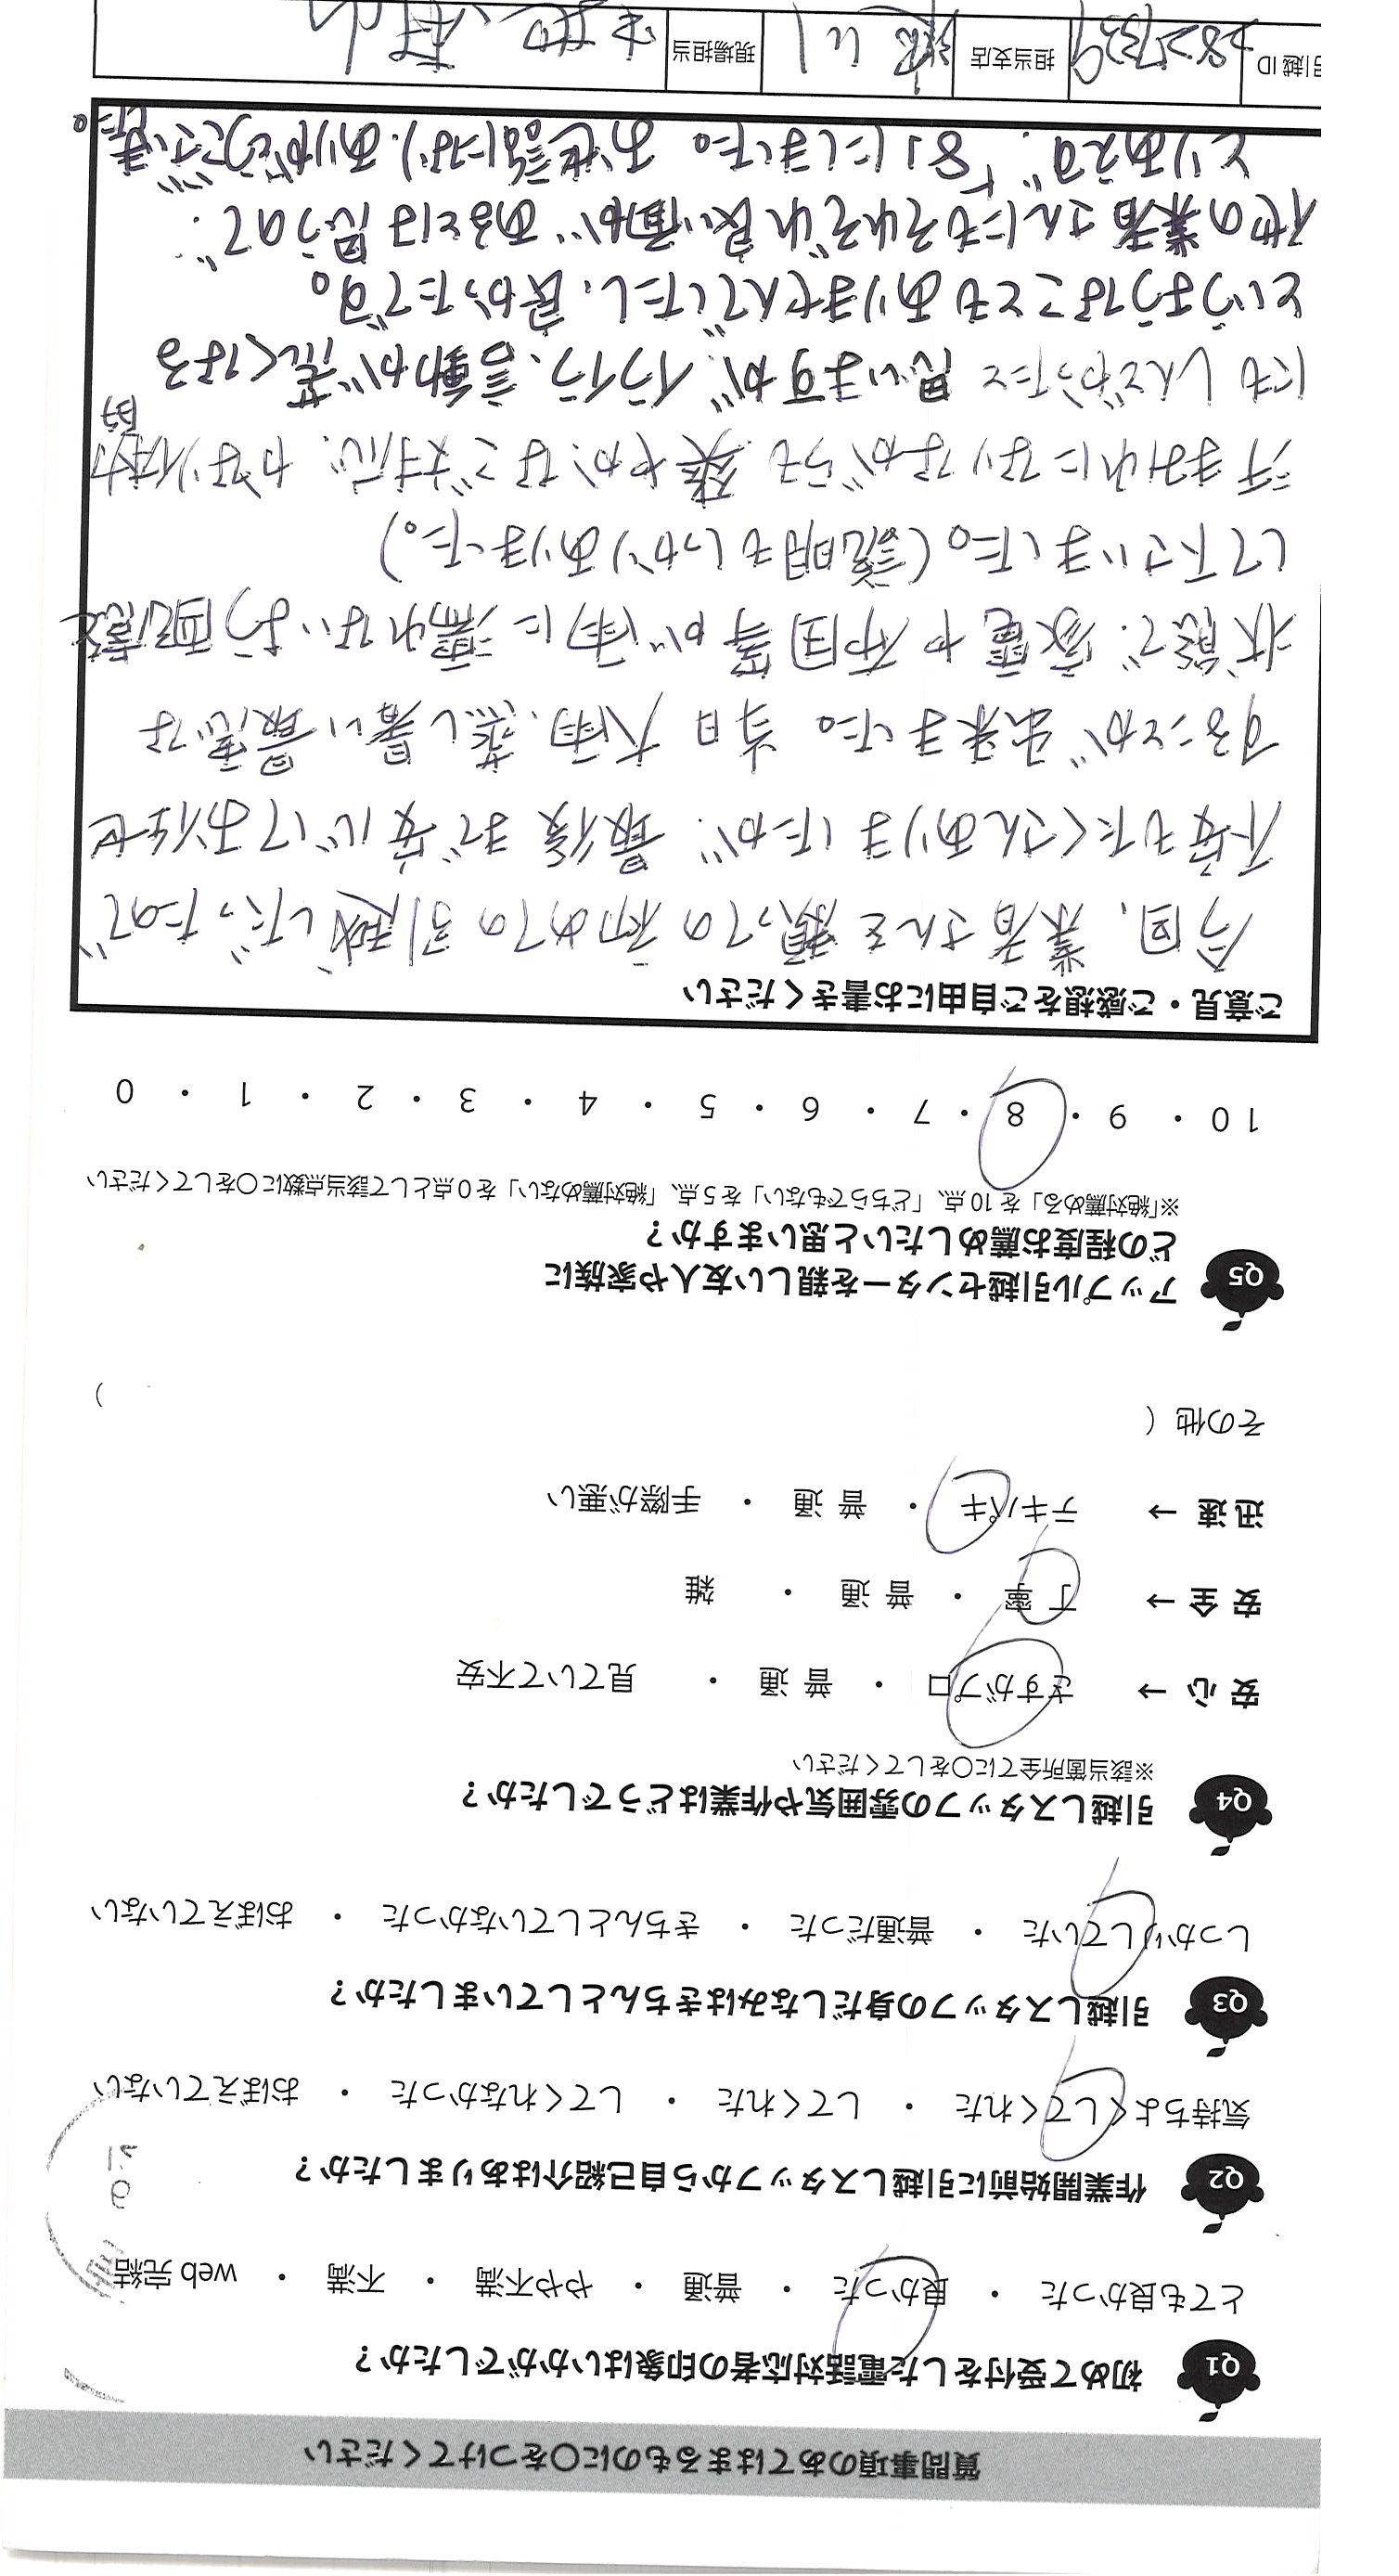 質問事項のあてはまるものに○をつけてください
Q1 初めて受付をした電話対応者の印象はいかがでしたか?
とても良かった ・ 良かった ・ 普通 ・ やや不満 ・ 不満 ・ web完結
Q2 作業開始前に引越しスタッフから自己紹介はありましたか?
気持ちよくしてくれた ・ してくれた ・ してくれなかった ・ おぼえていない
Q3 引越しスタッフの身だしなみはきちんとしていましたか?
しっかりしていた ・ 普通だった ・ きちんとしていなかった ・ おぼえていない
Q4 引越しスタッフの雰囲気や作業はどうでしたか?
※該当箇所全てに○をしてください
安心 → さすがプロ ・ 普通 ・ 見ていて不安
安全 → 丁寧 ・ 普通 ・ 雑
迅速 → テキパキ ・ 普通 ・ 手際が悪い
その他 ( )
Q5 アップル引越センターを親しい友人や家族に
どの程度お薦めしたいと思いますか?
※「絶対薦める」を10点、「どちらでもない」を5点、「絶対薦めない」を0点として該当点数に○をしてください
10 ・ 9 ・ 8 ・ 7 ・ 6 ・ 5 ・ 4 ・ 3 ・ 2 ・ 1 ・ 0
ご意見・ご感想をご自由にお書きください
今回、業者さんを頼っての初めての引越しだったので
不安もたくさんありましたが、最後まで安心してお任せ
することが出来ました。当日大雨、蒸し暑い最悪な
状態で、家電や布団等が雨に濡れないよう配慮を
して下さいました。(説明もしっかりありました。)
汗まみれになりながらも爽やかなご対応、かなり体力的
にもしんどかったと思いますが、イライラ、言動が荒くなる
というようなこともありませんでしたし、良かったです。
他の業者さんにもそれぞれ良い面があるとは思うので、
とりあえず、「8」にしました。お世話になり、ありがとうございました。
引越ID 担当支店 現場担当